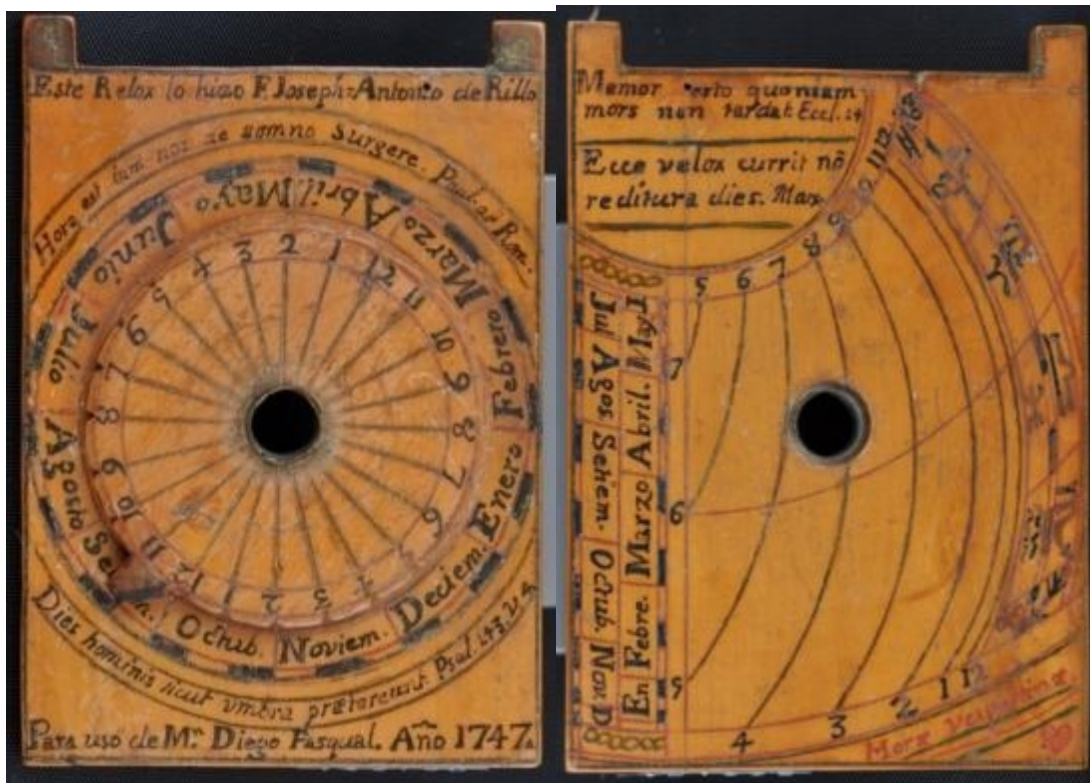 Este Relox lo hizo F. Joseph=Antonio de Rillo
Hora est iam nos de somno surgere. Paul. ad Rom.
Enero
Febrero
Marzo
Abril.
Mayo
Junio
Julio
Agosto
Se
Octub.
Noviem.
Deciem.
1 2 3 4 5 6 7 8 9 10 11 12
1 2 3 4 5 6 7 8 9 10 11 12
Dies hominis sicut umbra prætereunt. Psal. 143. V. 4.
Para uso de Mn. Diego Pasqual. Año 1747.
Memor esto quoniam
mors non tardat. Eccl. 14
Ecce velox currit nō
reditura dies. Max
5 6 7 8 9 10 11 12
7
6
5
4 3 2 1 12
Jul Agos. Setiem. Octub. Nov. D
En Febre. Marzo Abril. May